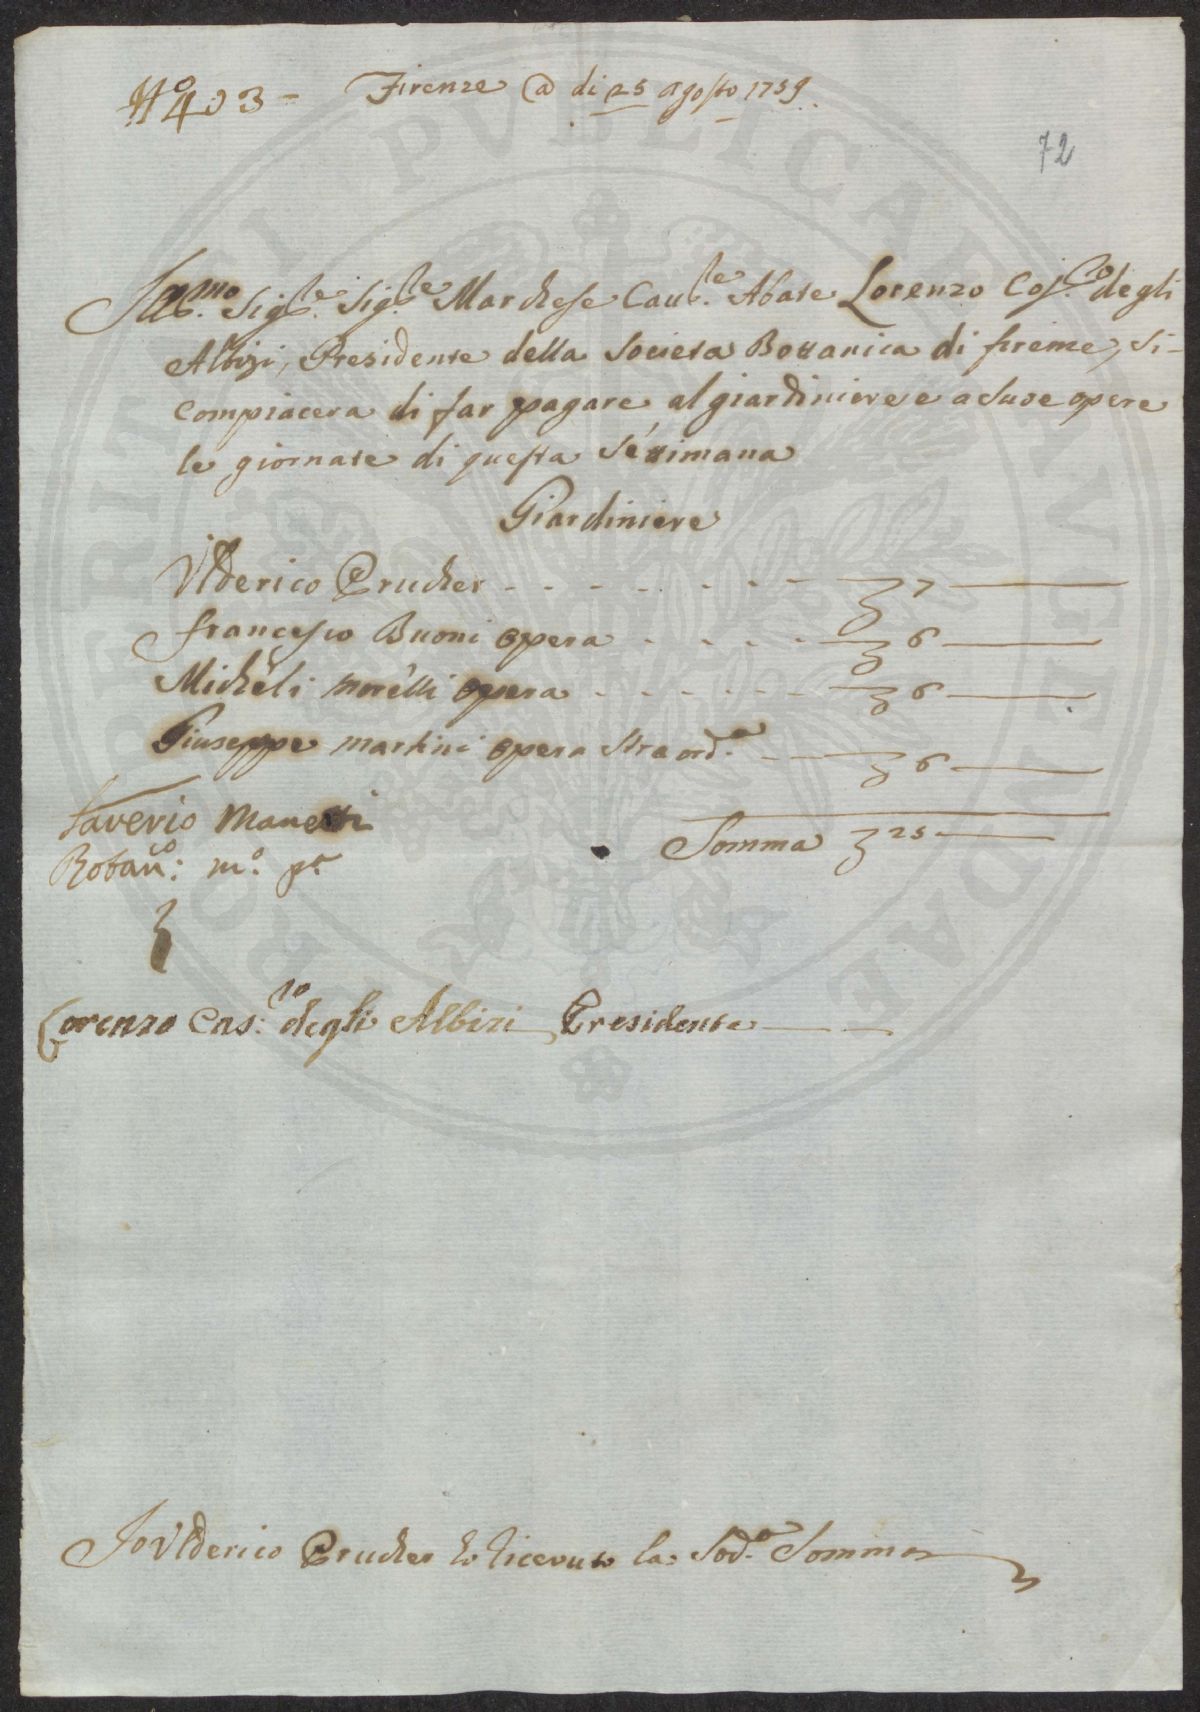 N.º 403 - Firenze @ di 25 agosto 1759
72
Ill.mo Sig.re Sig.re Marchese Cau.re Abate Lorenzo Cos.mo degli
Albizi, Presidente della Societa Bottanica di firenze, si-
compiacera di far pagare al giardiniere e a sue opere
le giornate di questa settimana
Giardiniere
Ulderico Prucher - - - - - - - - 7
francesco Buoni opera - - - - - 6
Micheli morelli opera - - - - - - 6
Giuseppe martini opera straord.a - - 6
Saverio Manetti
Botan.co: m.o p.a
Somma 25
Lorenzo Cos: degli Albizi Presidente
Io Ulderico Prucher ho riceuuto la Sod.a Somma